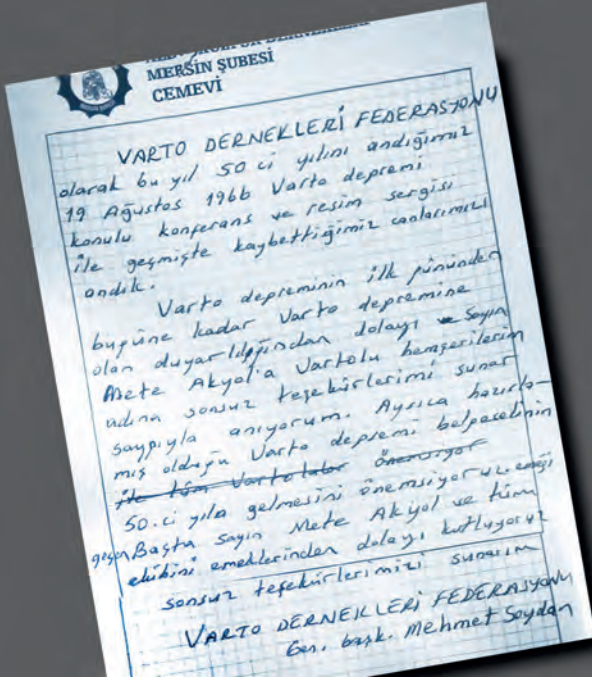 MERSİN ŞUBESİ
CEMEVİ
VARTO DERNEKLERİ FEDERASYONU
olarak bu yıl 50 ci yılını andığımız
19 Ağustos 1966 Varto depremi
konulu konferans ve resim sergisi
ile geçmişte kaybettiğimiz canlarımızı
andık.
Varto depreminin ilk gününden
bugüne kadar Varto depremine
olan duyarlılığından dolayı ve Sayın
Mete Akyol'a Vartolu hemşerilerim
adına sonsuz teşekürlerimi sunar
saygıyla anıyorum. Ayrıca hazırla-
mış olduğu Varto depremi belgeselinin
ile tüm Vartolular önemsiyor
50.ci yıla gelmesini önemsiyoruz. emeği
geçen Başta sayın Mete Akyol ve tüm
ekibini emeklerinden dolayı kutluyoruz
sonsuz teşekürlerimizi sunarım
VARTO DERNEKLERİ FEDERASYONU
Gen. başk. Mehmet Soydan